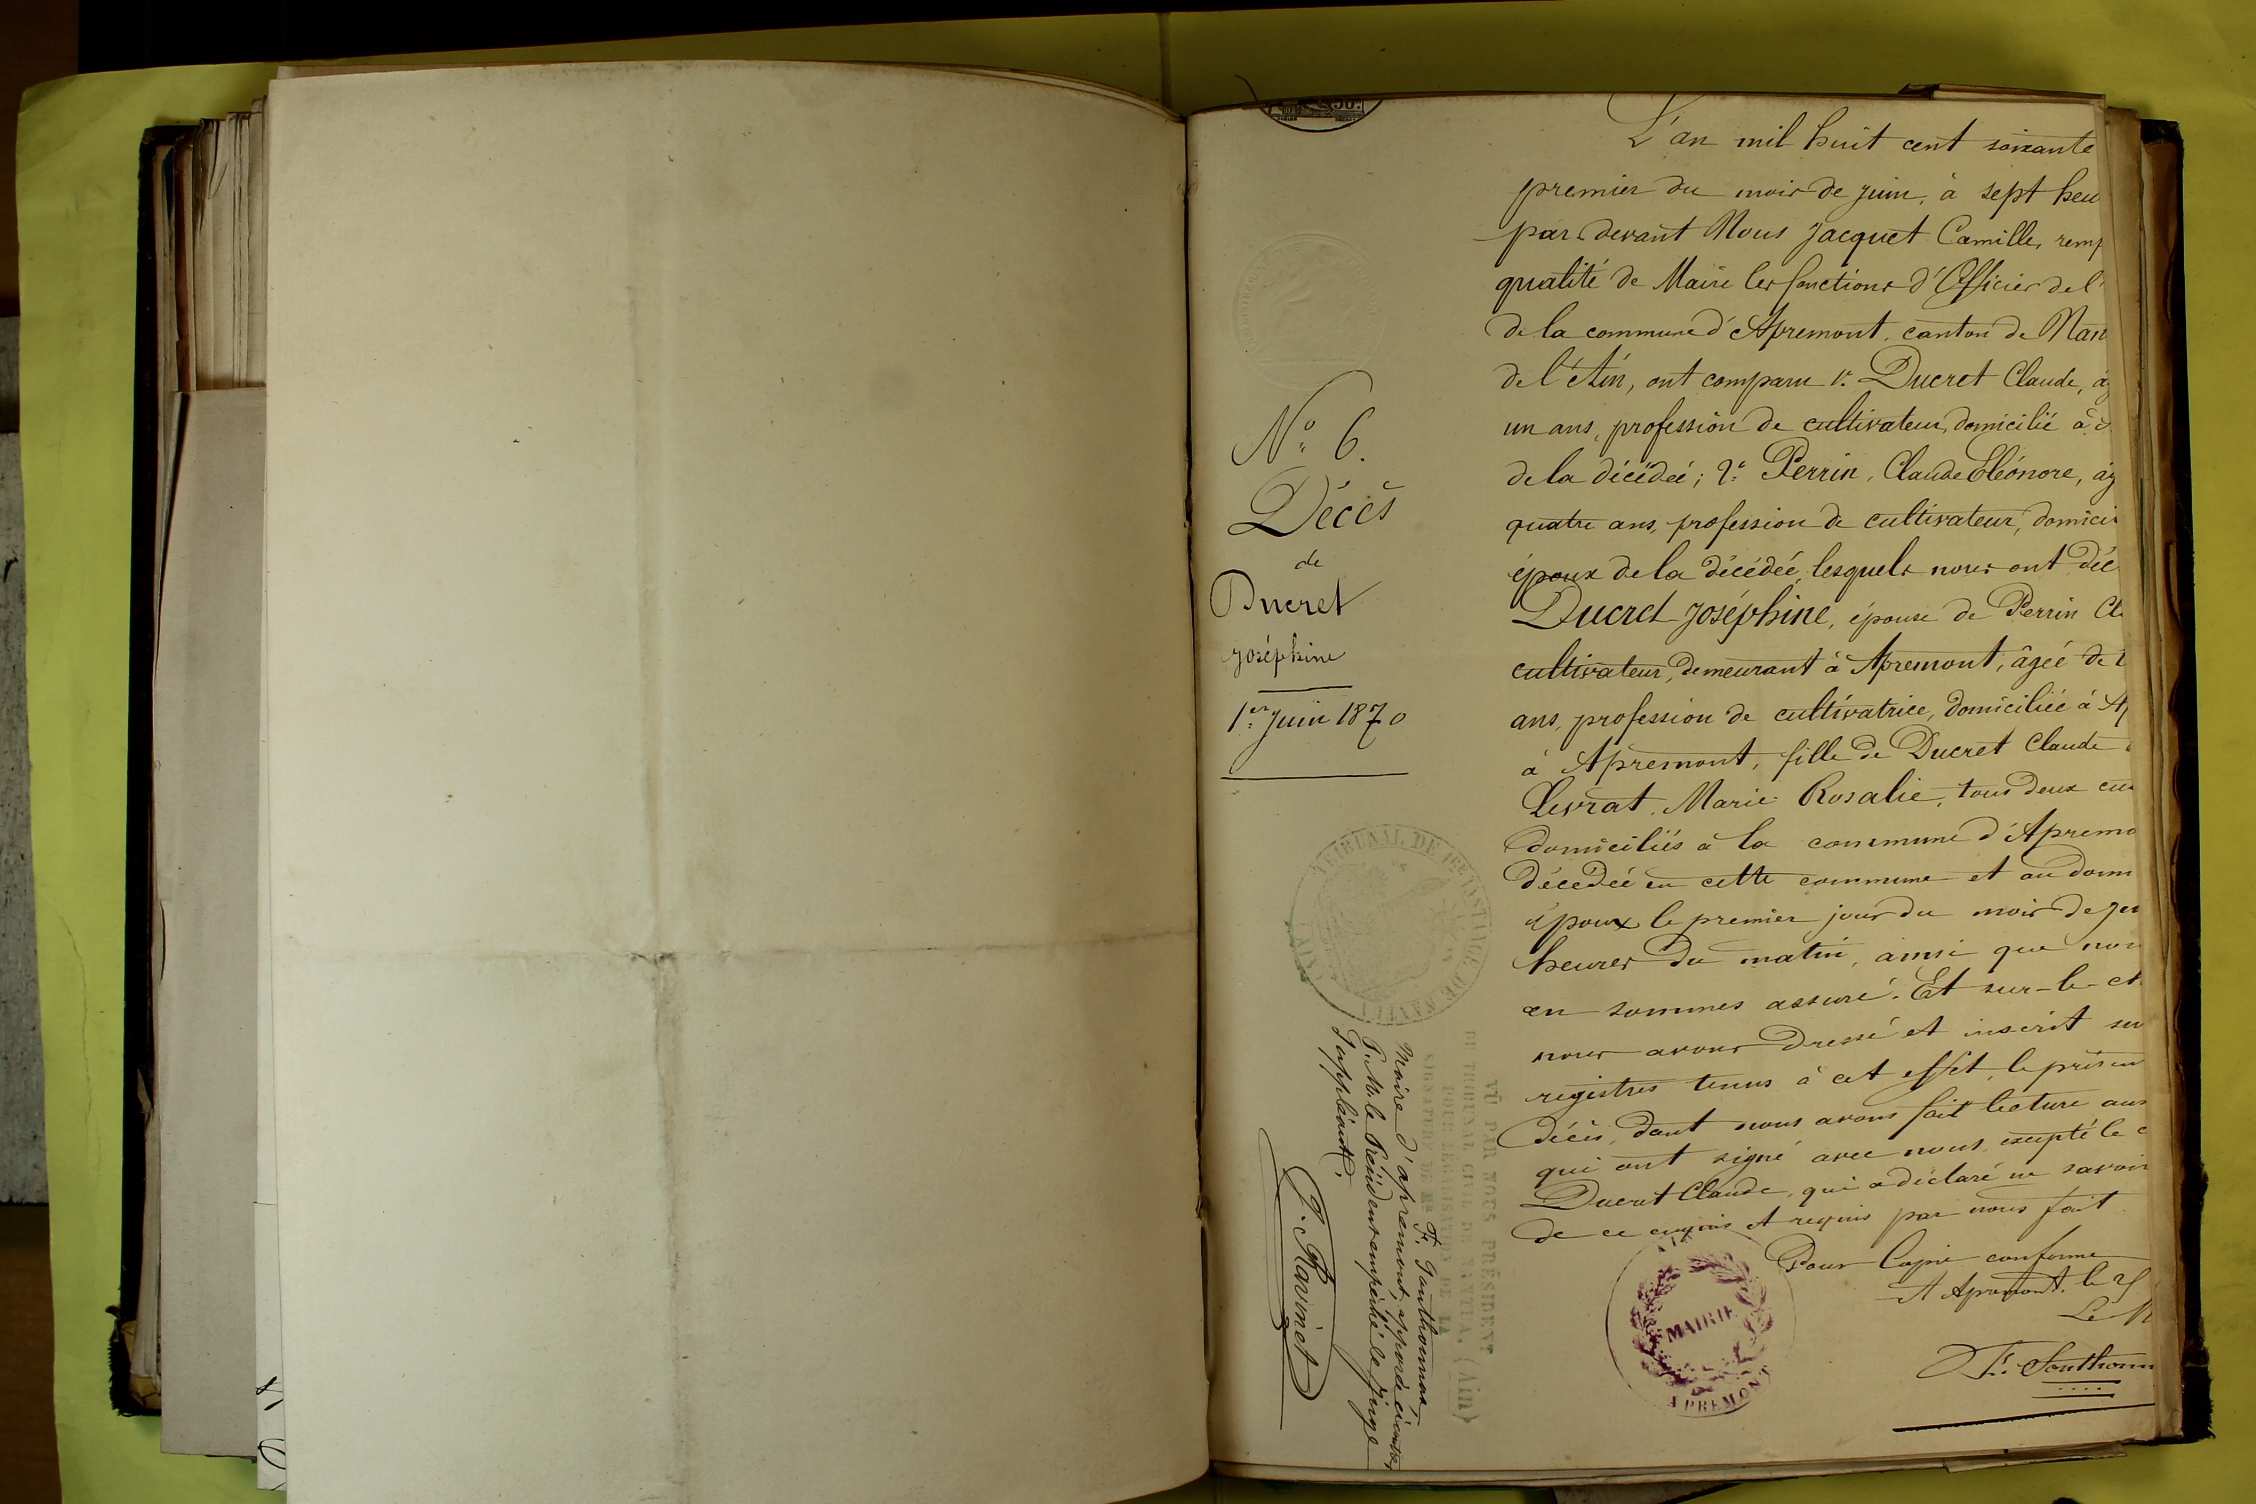 N° 6.
Décès
de
Ducret
Joséphine
1er Juin 1870
L'an mil huit cent soixante
premier du mois de juin, à sept heu
par devant Nous Jacquet Camille, remp
qualité de Maire les fonctions d'Officier de l'
de la commune d'Apremont, canton de Nan
de l'Ain, ont comparu 1° Ducret Claude, âg
un ans, profession de cultivateur, domicilié à
de la décédée; 2° Perrin, Claude Eléonore, âg
quatre ans, profession de cultivateur, domici
époux de la décédée, lesquels nous ont déc
Ducret Joséphine, épouse de Perrin Cl
cultivateur, demeurant à Apremont, âgée de
ans, profession de cultivatrice, domiciliée à Ap
à Apremont, fille de Ducret Claude
Levrat Marie Rosalie, tous deux cu
domiciliés à la commune d'Apremo
décédée en cette commune et au domi
époux le premier jour du mois de ju
heures du matin, ainsi que nou
en sommes assuré. Et sur-le-ch
nous avons dressé et inscrit su
registres tenus à cet effet, le présen
décès, dont nous avons fait lecture aux
qui ont signé avec nous, excepté le
Ducret Claude, qui a déclaré ne savoir
de ce enquis et requis par nous fait
Pour Copie conforme
A Apremont, le
Le M
Fs. Gonthonn
MAIRIE
APREMONT
TRIBUNAL DE 1ERE INSTANCE DE NANTUA
(AIN)
VU PAR NOUS PRÉSIDENT
DU TRIBUNAL CIVIL DE NANTUA, (Ain)
POUR LÉGALISATION DE LA
SIGNATURE DE Mr Fs. Gonthonnas
Maire d'apremont, apposée ci-contre,
P. Mr. le Président empêché le Juge
Suppléant,
J. Ravinet